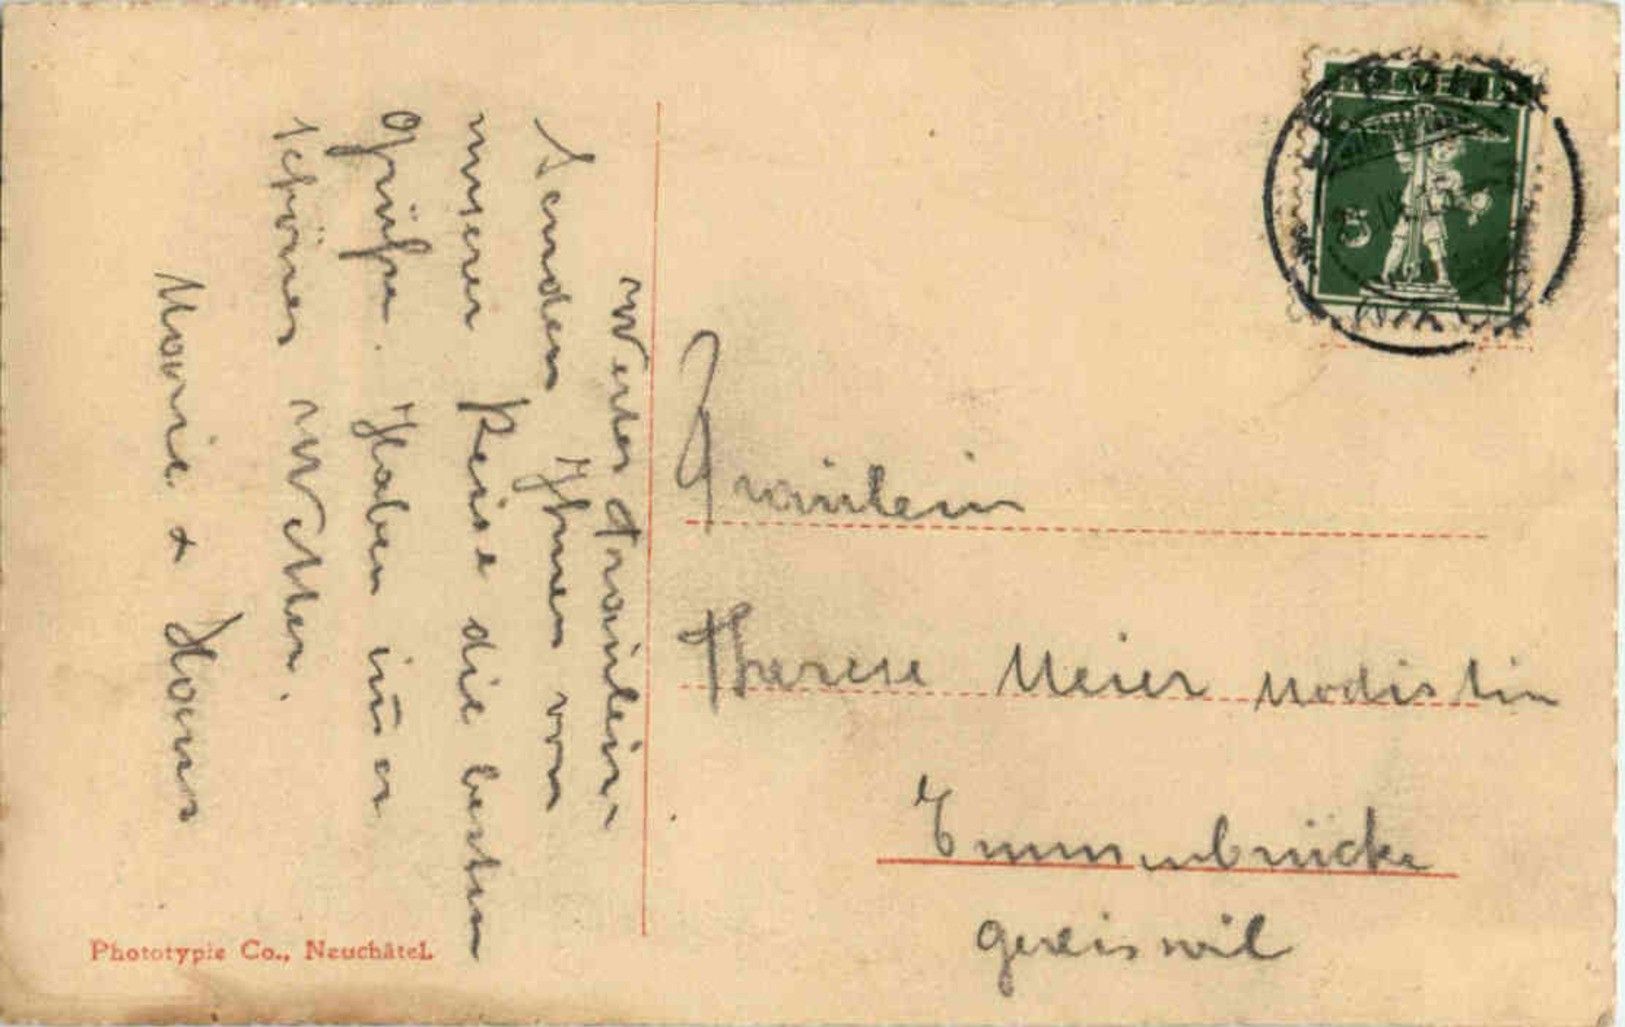 Wertes Fräulein
Senden Ihnen von
unserer Reise die besten
Grüsse. Haben im̄er
schönes Wetter.
Marie & Hans
Phototypie Co., Neuchâtel.
HELVETIA
5
Fräulein
Therese Meier Modistin
Emmenbrücke
Gerliswil